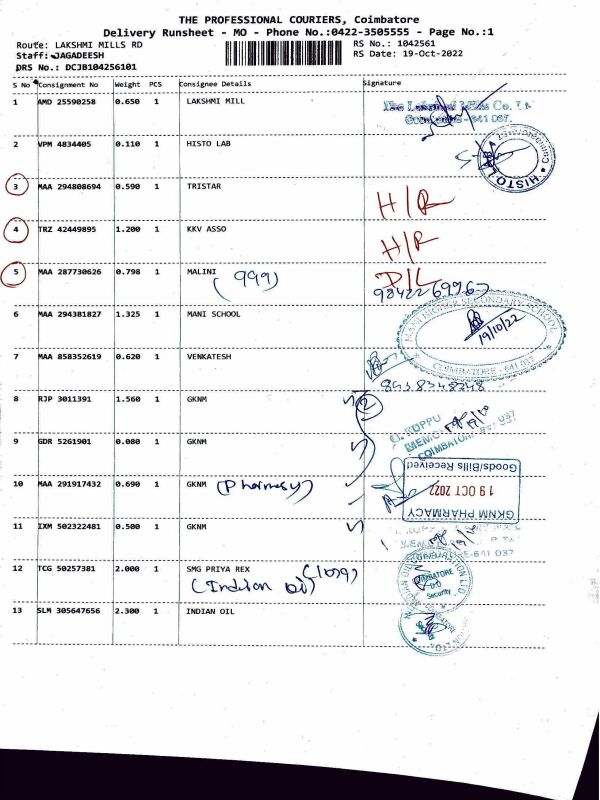 THE PROFESSIONAL COURIERS, Coimbatore
Delivery Runsheet - MO - Phone No.:0422-3505555 - Page No.:1
Route: LAKSHMI MILLS RD
RS No.: 1042561
Staff: JAGADEESH
RS Date: 19-Oct-2022
DRS No.: DCJB104256101
S No Consignment No Weight PCS Consignee Details Signature
1 AMD 25590258 0.650 1 LAKSHMI MILL
The Lakshmi Mills Co. Lt
Coimbatore - 641 037.
2 VPM 4834405 0.110 1 HISTO LAB
HISTO LAB
3 MAA 294808694 0.590 1 TRISTAR H/R
4 TRZ 42449895 1.200 1 KKV ASSO H/R
5 MAA 287730626 0.798 1 MALINI (999) D/L
6 MAA 294381827 1.325 1 MANI SCHOOL
MANI HIGHER SECONDARY SCHOOL
19/10/22
COIMBATORE - 641 037
7 MAA 858352619 0.620 1 VENKATESH
8438348248
8 RJP 3011391 1.560 1 GKNM 2
9 GDR 5261901 0.080 1 GKNM
G. KUPPU
MEM
COIMBATORE 641 037
10 MAA 291917432 0.690 1 GKNM (Pharmasy)
Goods/Bills Received
19 OCT 2022
GKNM PHARMACY
11 IXM 502322481 0.500 1 GKNM
641 037
12 TCG 50257381 2.000 1 SMG PRIYA REX
(Indian oil)
COIMBATORE
Security
13 SLM 305647656 2.300 1 INDIAN OIL